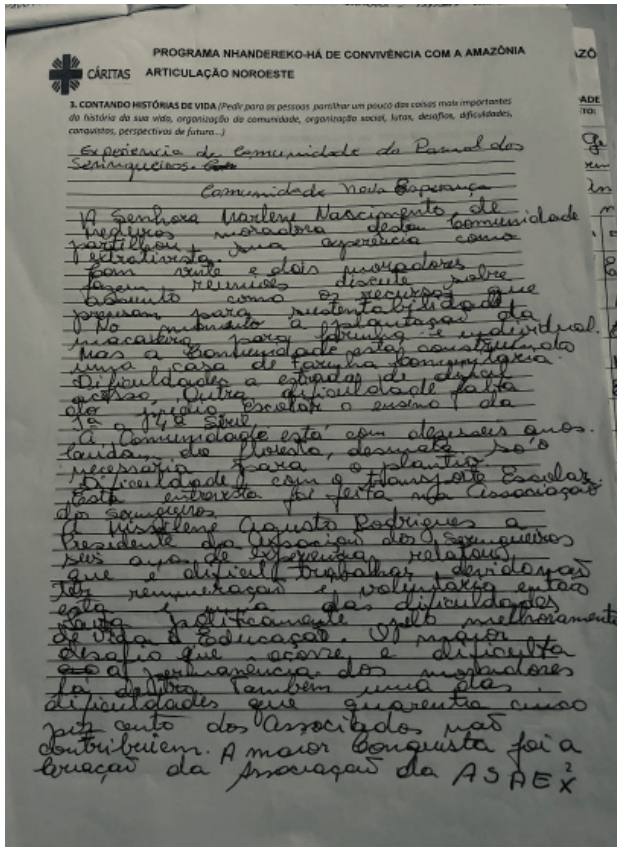 PROGRAMA NHANDEREKO-HÁ DE CONVIVÊNCIA COM A AMAZÔNIA
CÁRITAS ARTICULAÇÃO NOROESTE
3. CONTANDO HISTÓRIAS DE VIDA (Pedir para as pessoas partilhar um pouco das coisas mais importantes
da história da sua vida, organização da comunidade, organização social, lutas, desafios, dificuldades,
conquistas, perspectivas de futuro...)
Experiencia de Comunidade do Ramal dos
Seringueiros.
Comunidade Nova Esperança
A Senhora Marlene Nascimento de
Medeiros moradora desta Comunidade
partilhou sua experiência como
extrativista.
Com vinte e dois moradores
fazem reuniões discute sobre
assunto como os recursos que
precisam para sustentabilidade
No momento a plantação da
macaxeira para farinha é individual.
Mas a Comunidade está construindo
uma casa de farinha Comunitaria.
Dificuldades a estradas de dificel
acesso, Outra dificuldade falta
do predio Escolar o ensino da
1ª a 4ª Série.
A Comunidade está com desesseis anos.
da floresta, desmata só o
necessario para o plantio.
Dificuldade com o transporte Escolar.
Esta entrevista foi feita na Associação
dos Seringueiros.
A Agusto Rodrigues a
Presidente da Associação dos Seringueiros
seis anos de experiencia, relatou
que é dificil trabalhar devido não
ter remuneração é voluntario então
esta é uma das dificuldades
luta politicamente pelo melhoramento
de vida a Educação. O maior
desafio que ocorre e dificulta
a permanencia dos moradores
Também uma das
dificuldades que quarenta cinco
por cento dos Associados não
contribuem. A maior Conquista foi a
Criação da Associação da ASAEX